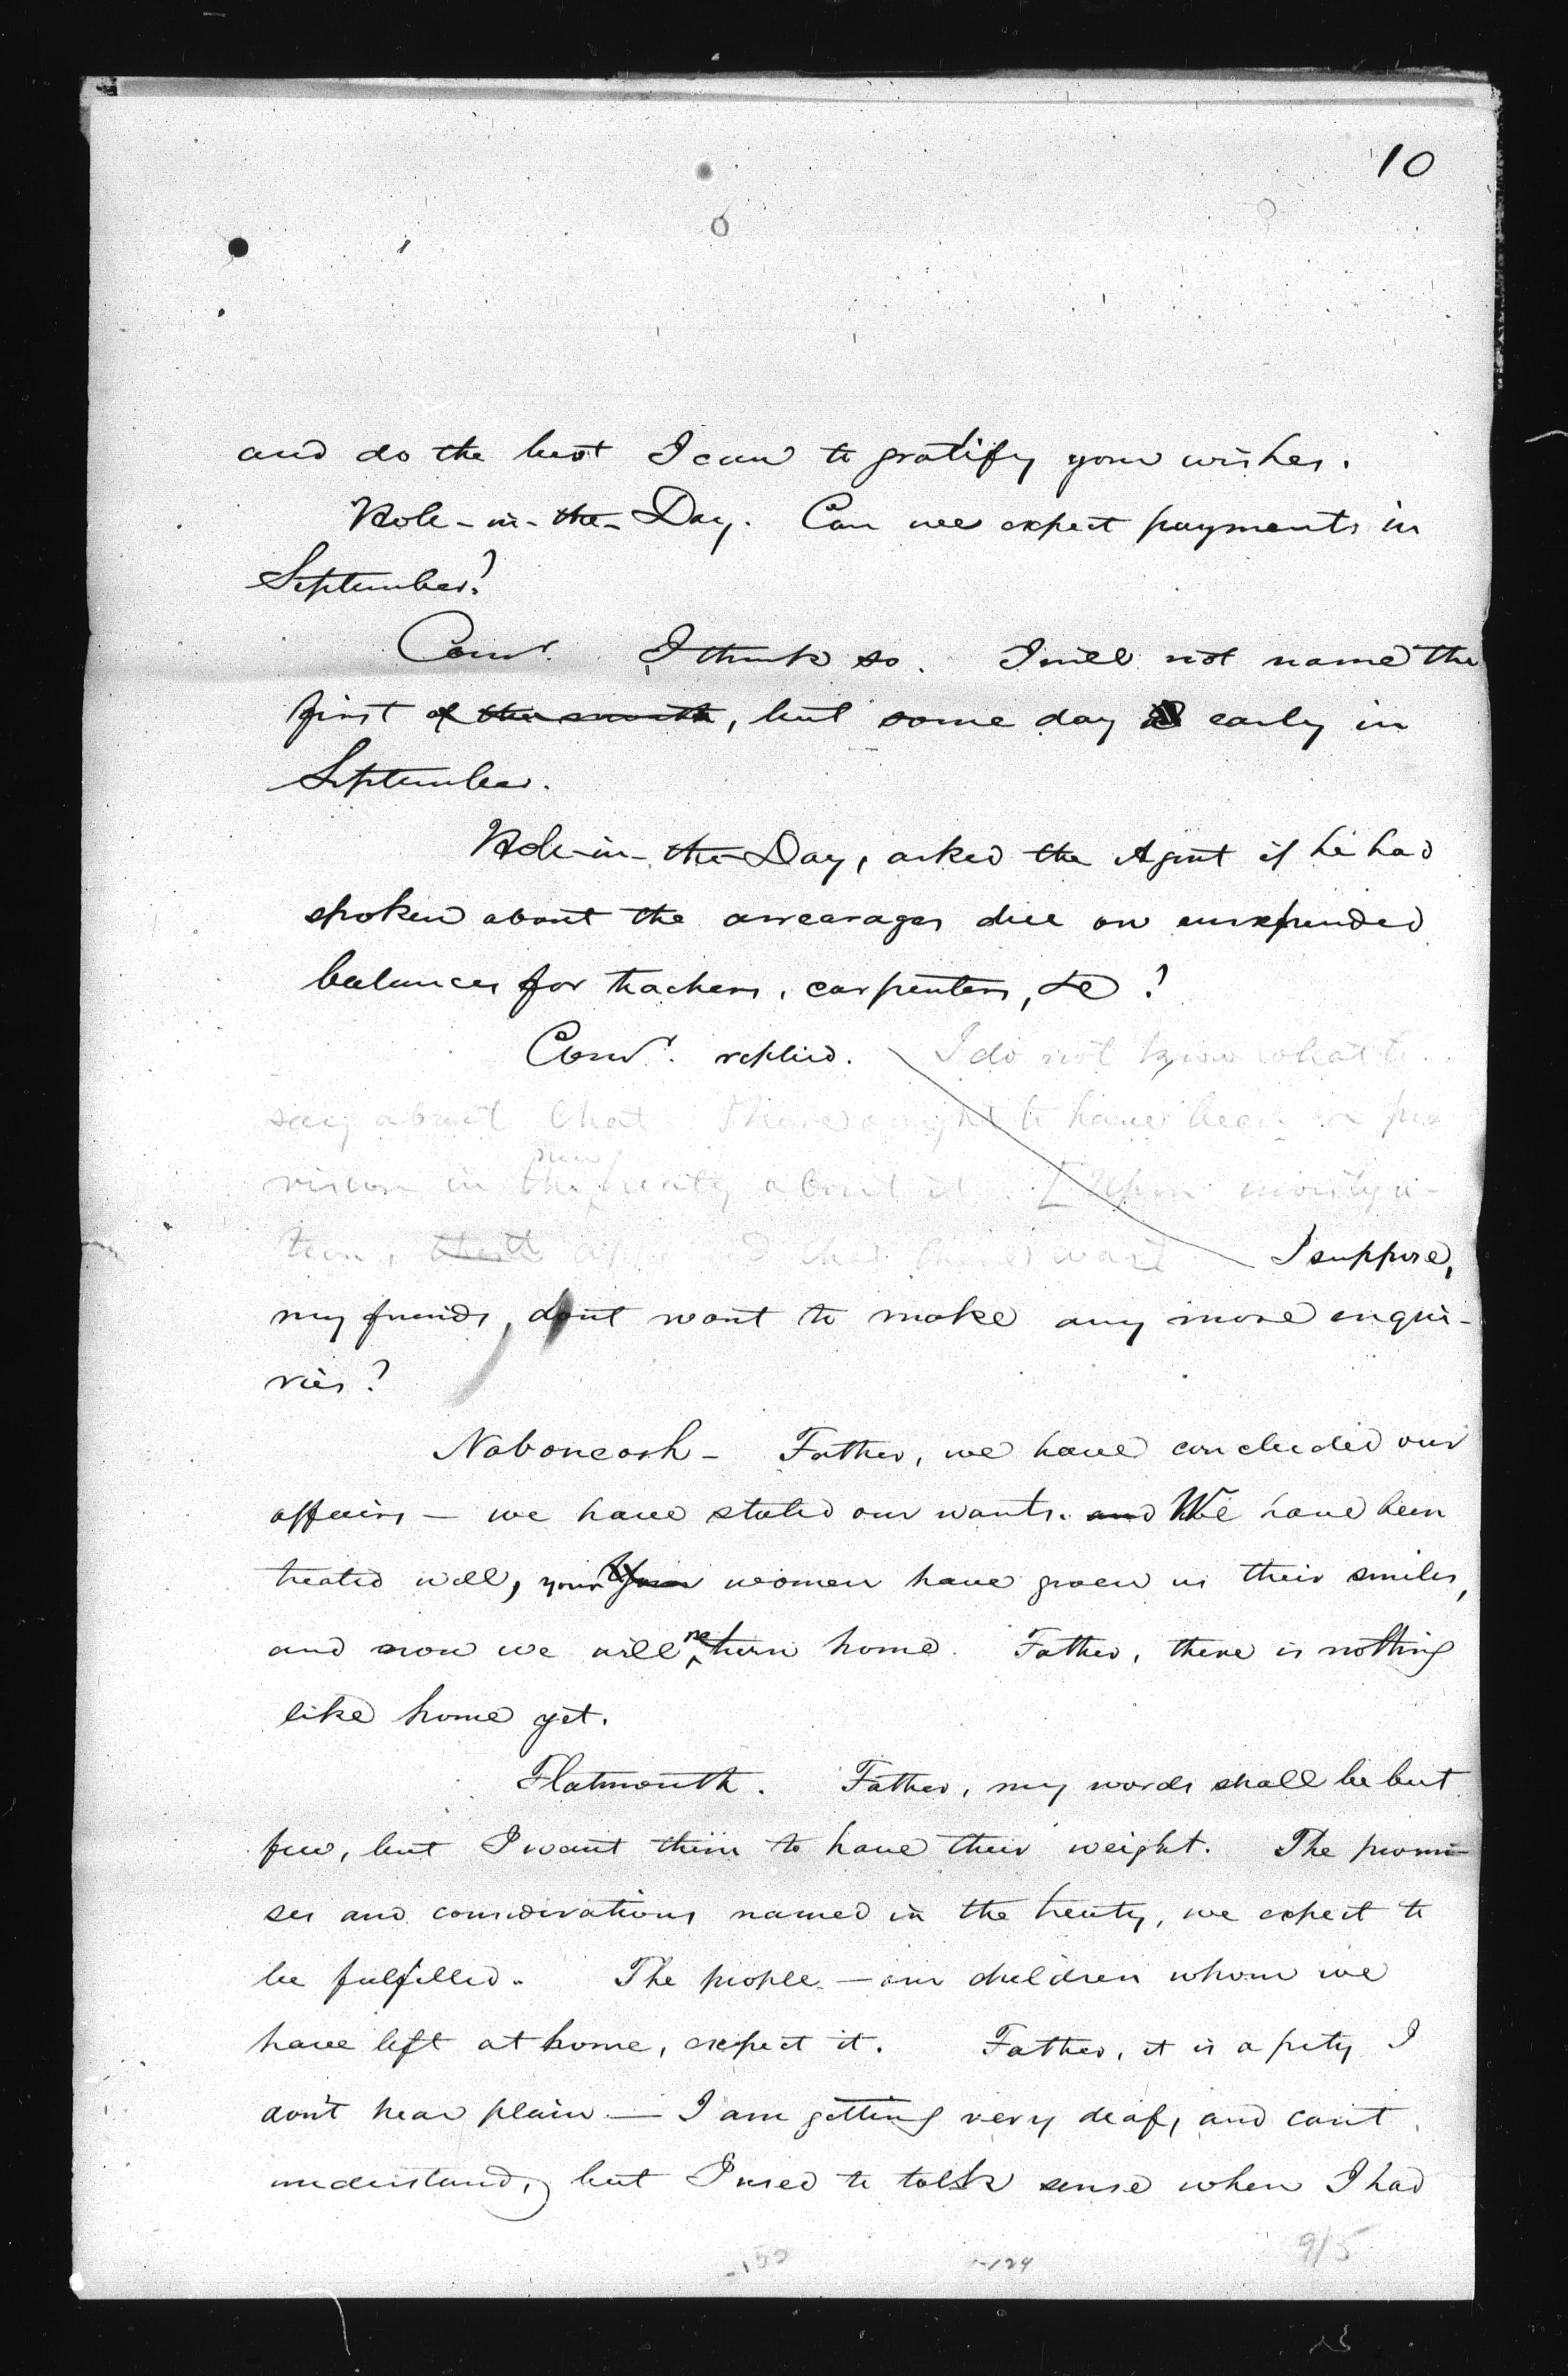 10
and do the best I can to gratify your wishes.
Hole-in-the-Day. Can we expect payments in
September?
Comr. I think so. I will not name the
first of the month, but some day early in
September.
Hole-in-the-Day, asked the Agent if he had
spoken about the arrearages due on unexpended
balances for teachers, carpenters, &c?
Comr. replied. I do not know what to
say about that There ought to have been a pro
vision in the new treaty about it. [Upon investiga-
tion, I suppose,
my friends, dont want to make any more enqui-
ries?
Naboneash - Father, we have concluded our
affairs — we have stated our wants. and We have been
treated well, your women have given us their smiles,
and now we will return home. Father, there is nothing
like home yet.
Flatmouth. Father, my words shall be but
few, but I want them to have their weight. The promi-
ses and considerations named in the treaty, we expect to
be fulfilled. The people — our children whom we
have left at home, expect it. Father, it is a pity I
don't hear plain — I am getting very deaf, and can't
understand, but I used to talk sense when I had
9/5